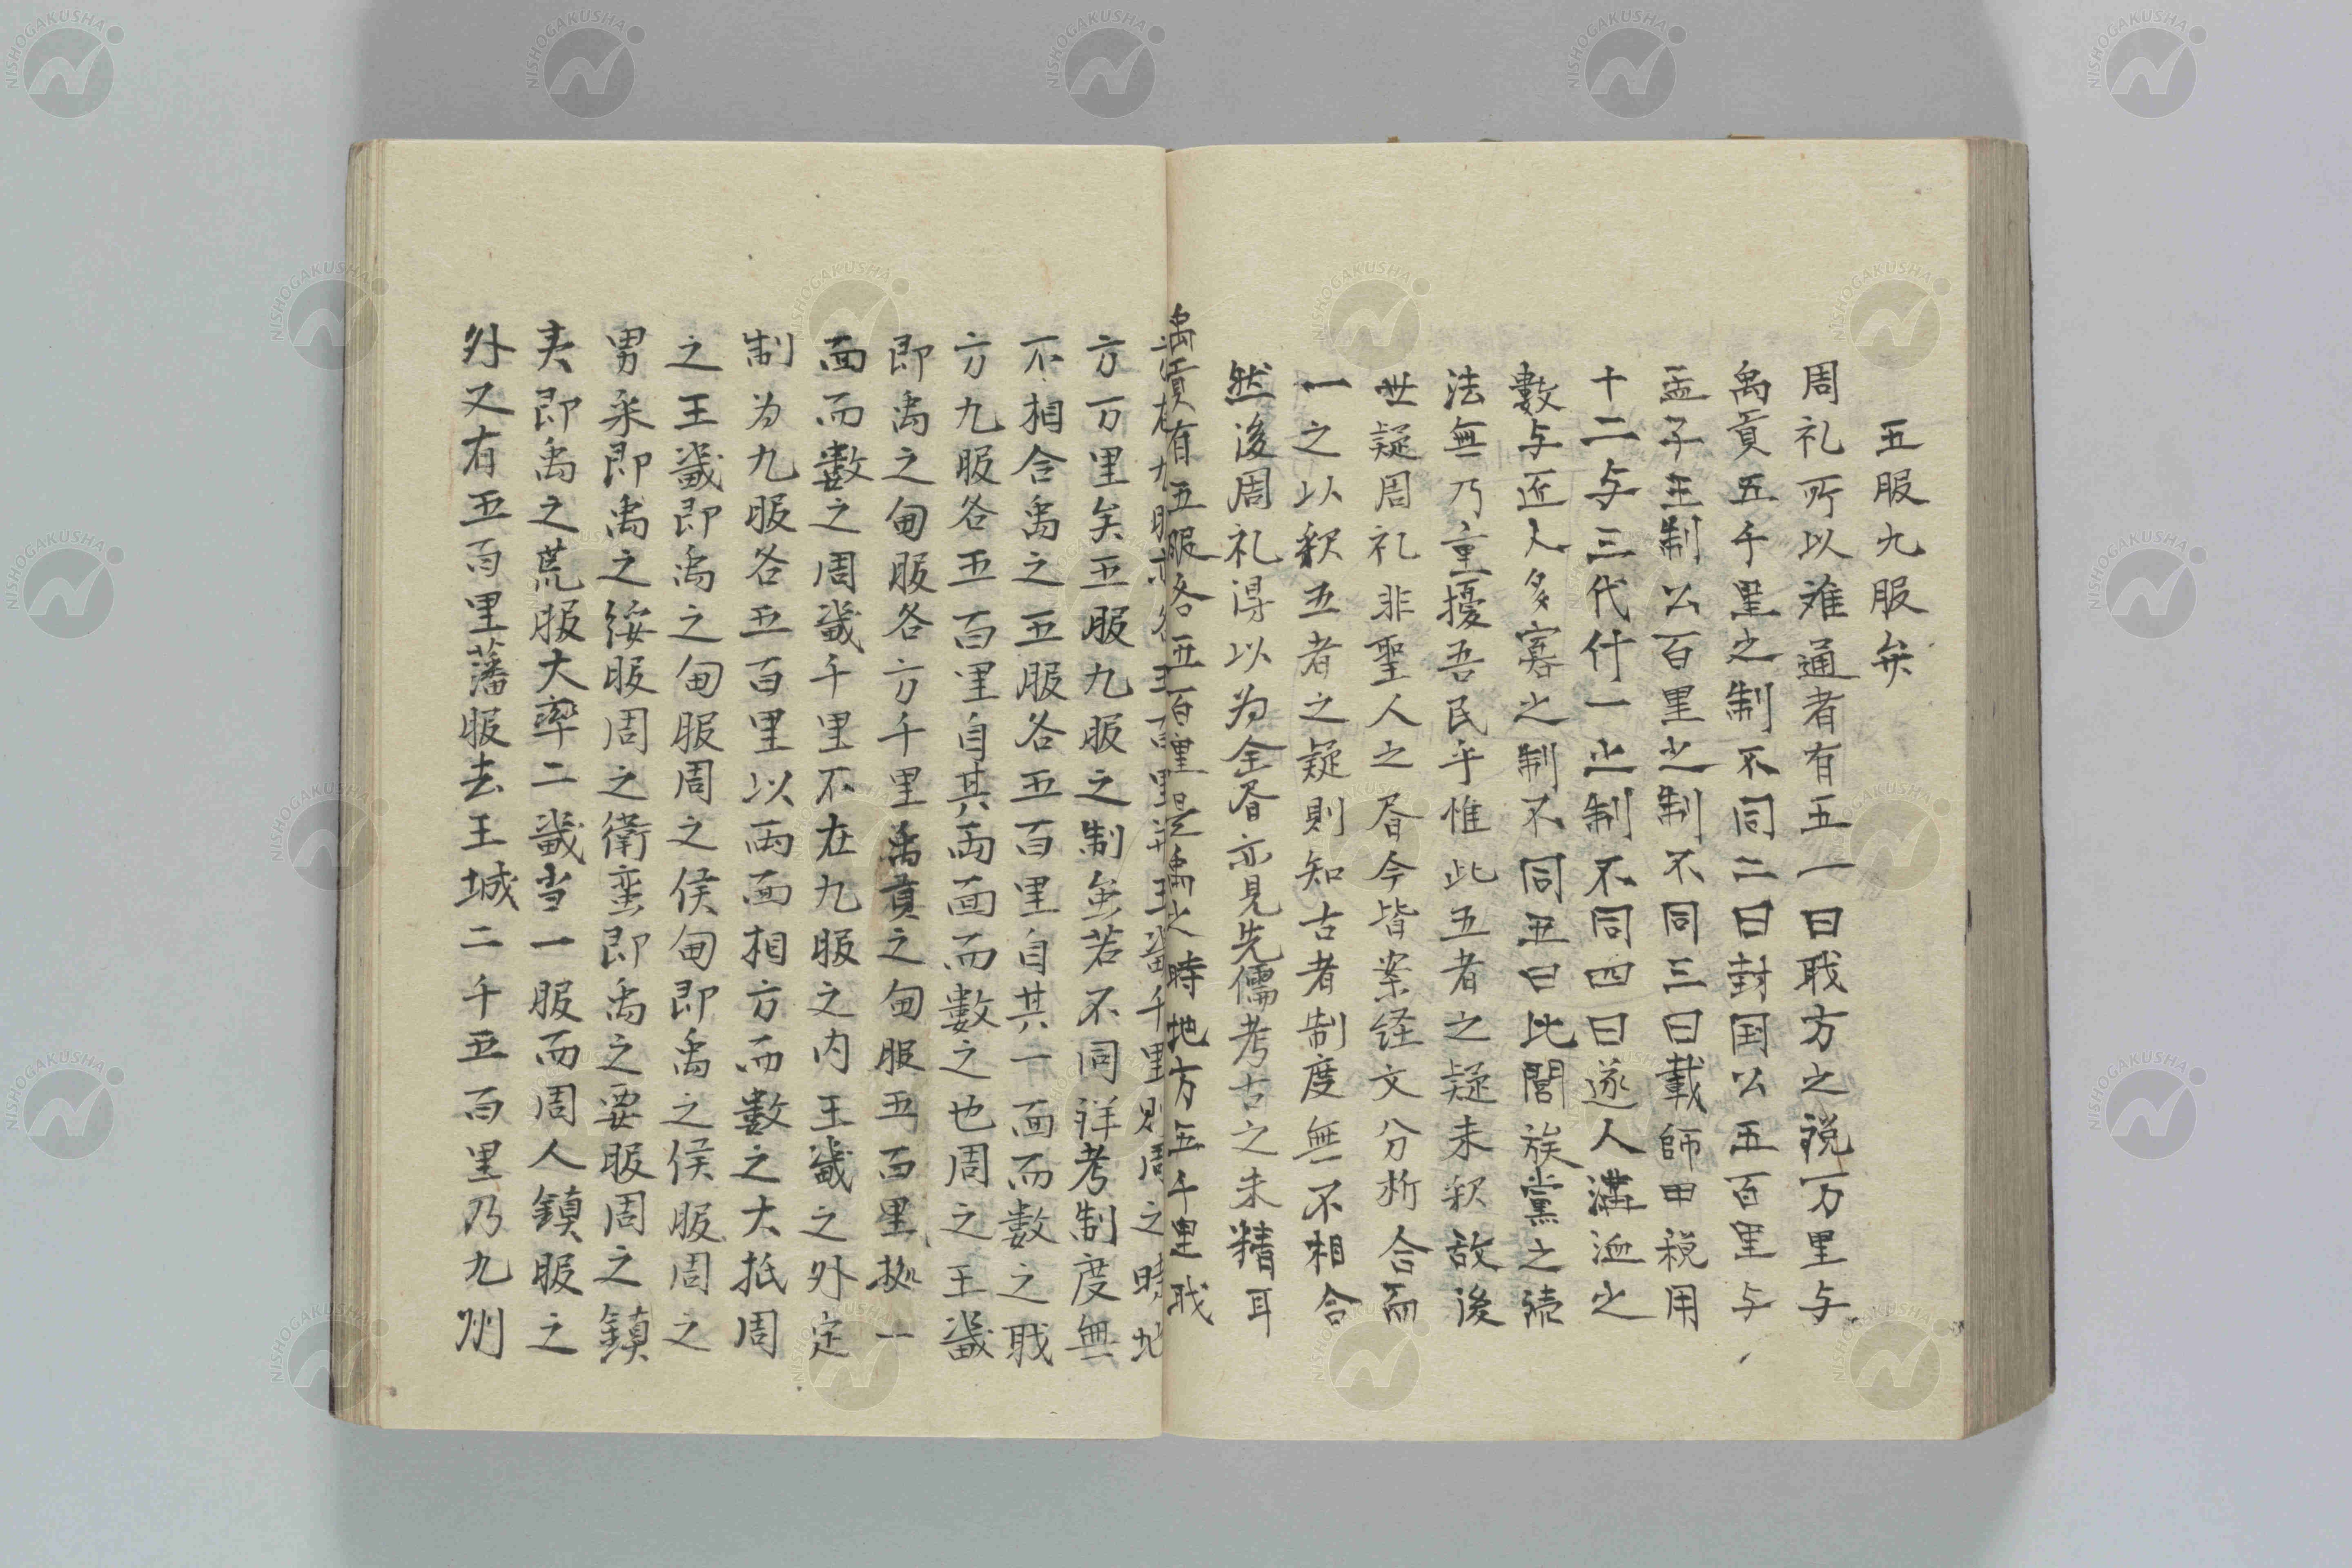 五服九服弁
周礼所以难通者有五一曰職方之説万里与
禹貢五千里之制不同二曰封国公五百里与
孟子王制公百里之制不同三曰載師田税用
十二与三代什一之制不同四曰遂人溝洫之
數与匠人多寡之制不同五曰比閭族黨之続
法無乃重擾吾民乎惟此五者之疑未釈故後
世疑周礼非聖人之昏今皆案经文分析合而
一之以釈五者之疑則知古者制度無不相合
然後周礼得以为全昏亦見先儒考古之未精耳
禹貢有五服各五百里是禹之時地方五千里職
方万里矣五服九服之制㒵若不同详考制度無
不相合禹之五服各五百里自其一面而數之職
方九服各五百里自其両面而數之也周之王畿
即禹之甸服各方千里禹貢之甸服五百里拠一
面而數之周畿千里不在九服之内王畿之外定
制为九服各五百里以両面相方而數之大抵周
之王畿即禹之甸服周之侯甸即禹之侯服周之
男采即禹之绥服周之衛蛮即禹之要服周之鎮
夷即禹之荒服大率二畿当一服而周人鎮服之
外又有五百里藩服去王城二千五百里乃九州
NISHOGAKUSHA